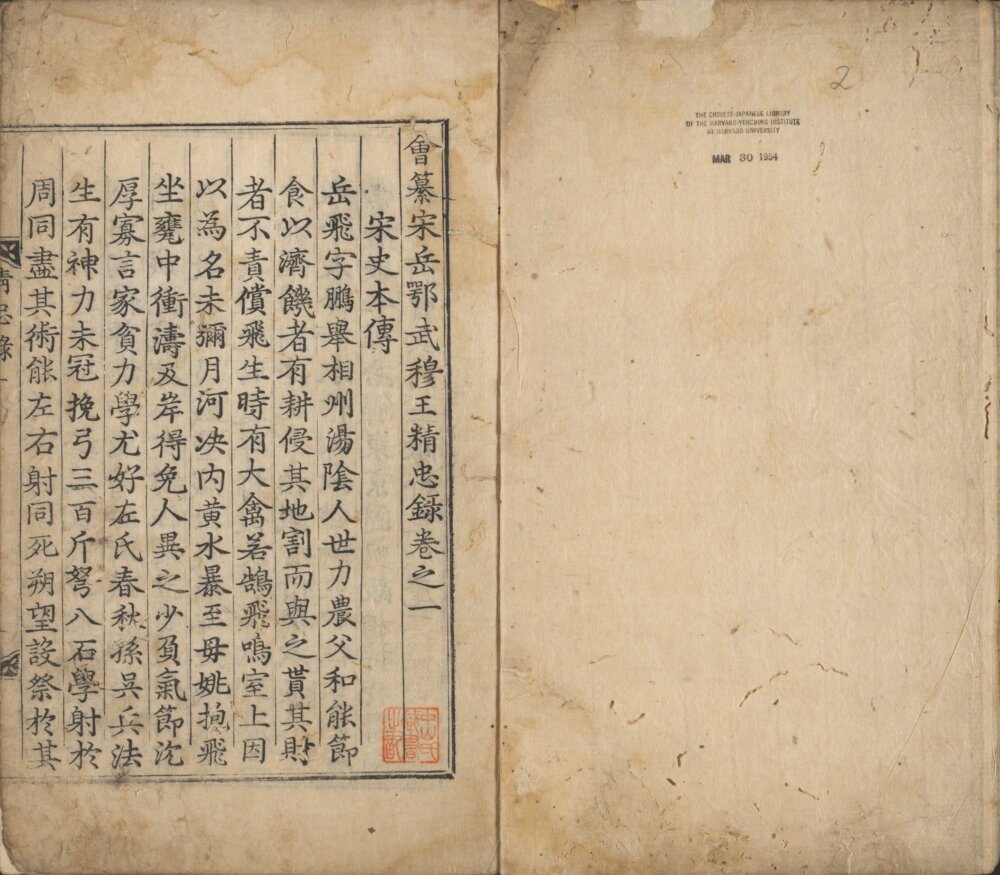 2
THE CHINESE-JAPANESE LIBRARY
OF THE HARVARD-YENCHING INSTITUTE
AT HARVARD UNIVERSITY
MAR 30 1954
會纂宋岳鄂武穆王精忠錄卷之一
宋史本傳
岳飛字鵬舉相州湯陰人世力農父和能節
食以濟饑者有耕侵其地割而與之貰其財
者不責償飛生時有大禽若鵠飛鳴室上因
以為名未彌月河决内黄水暴至母姚抱飛
坐甕中衝濤及岸得免人異之少負氣節沈
厚寡言家貧力學尤好左氏春秋孫吳兵法
生有神力未冠挽弓三百斤弩八石學射於
周同盡其術能左右射同死朔望設祭於其
精忠錄一